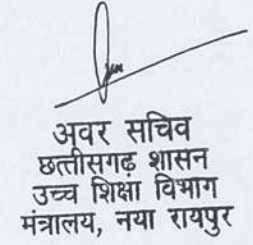 अवर सचिव
छत्तीसगढ़ शासन
उच्च शिक्षा विभाग
मंत्रालय, नया रायपुर